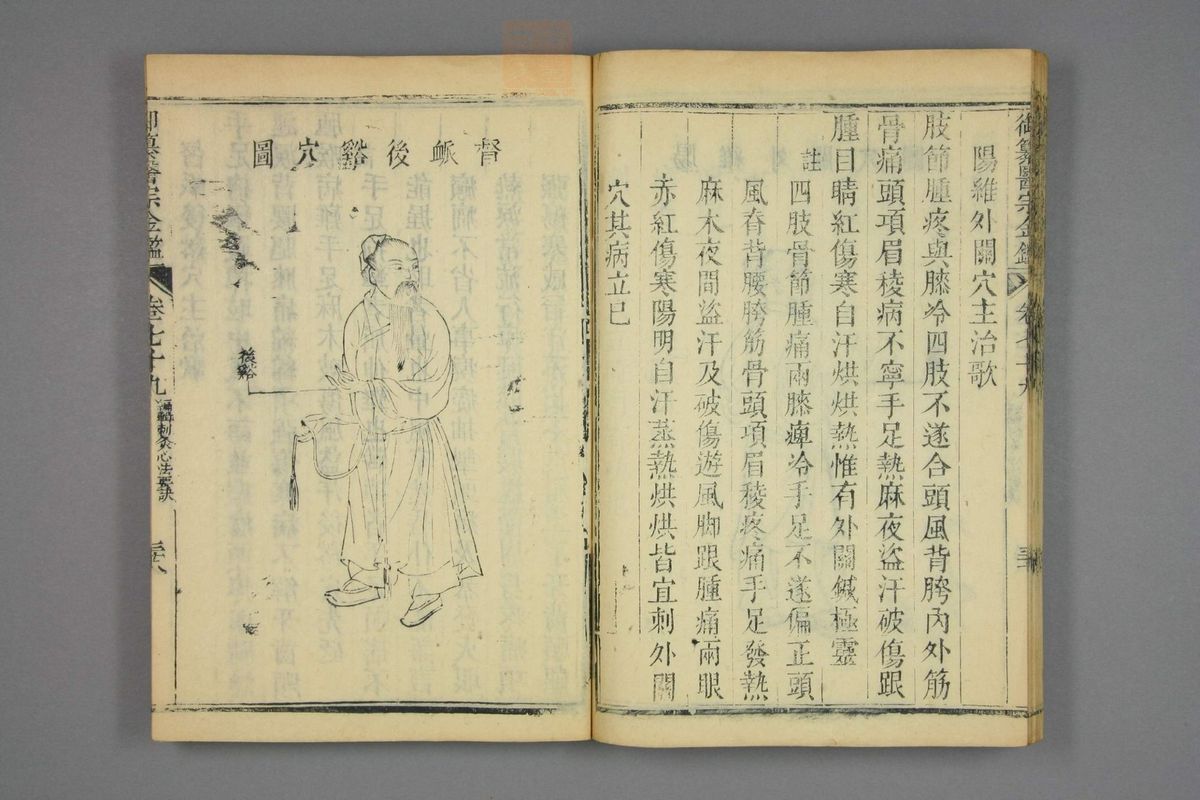 陽維外關穴主治歌
肢節腫疼與膝冷四肢不遂合頭風背胯內外筋
骨痛頭項眉稜病不寧手足熱麻夜盜汗破傷跟
腫目睛紅傷寒自汗烘烘熱惟有外關鍼極靈
註四肢骨節腫痛兩膝痺冷手足不遂偏正頭
風脊背腰胯筋骨頭項眉稜疼痛手足發熱
麻木夜間盜汗及破傷遊風脚跟腫痛兩眼
赤紅傷寒陽明自汗蒸熱烘烘皆宜刺外關
穴其病立已
督䘑後谿穴圖
後谿
御纂醫宗金鑑
卷七十九
編輯刺灸心法要訣